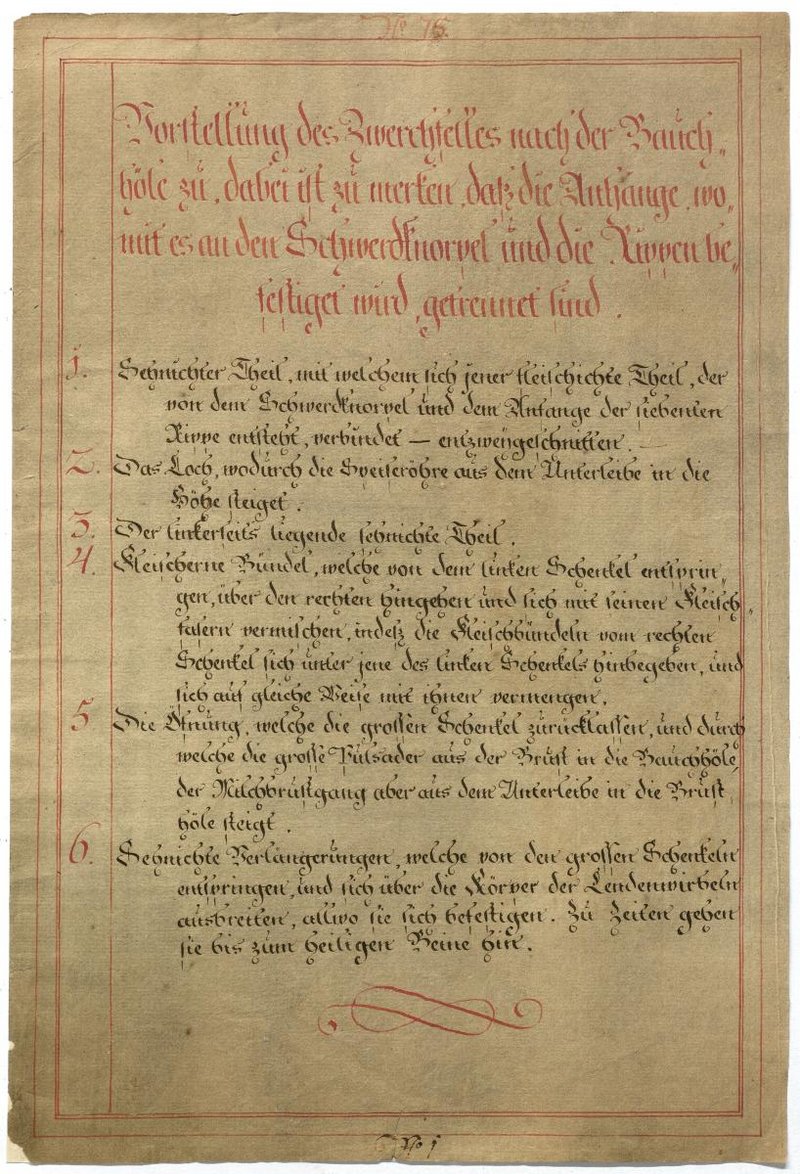 No 76.
Vorstellung des Zwerchfelles nach der Bauch„
höle zu, dabei ist zu merken, daß die Anhänge, wo„
mit es an den Schwerdknorpel und die Rippen be„
festiget wird, getrennet sind.
1. Sehnichter Theil, mit welchem sich jener fleischichte Theil, der
von dem Schwerdknorpel und dem Anfange der siebenten
Rippe entsteht, verbindet — entzweygeschnitten. —
2. Das Loch, wodurch die Speiseröhre aus dem Unterleibe in die
Höhe steiget.
3. Der linkerseits liegende sehnichte Theil.
4. Fleischerne Bündel, welche von dem linken Schenkel entsprin„
gen, über den rechten hingehen und sich mit seinen Fleisch„
fasern vermischen, indeß die Fleischbündeln vom rechten
Schenkel sich unter jene des linken Schenkels hinbegeben, und
sich auf gleiche Weise mit ihnen vermengen.
5 Die Öfnung, welche die grossen Schenkel zurücklassen, und durch
welche die grosse Pulsader aus der Brust in die Bauchhöle,
der Milchbrustgang aber aus dem Unterleibe in die Brust„
höle steigt.
6. Sehnichte Verlängerungen, welche von den grossen Schenkeln
entspringen, und sich über die Körper der Lendenwirbeln
ausbreiten, allwo sie sich befestigen. Zu Zeiten gehen
sie bis zum heiligen Beine hin.
No 1